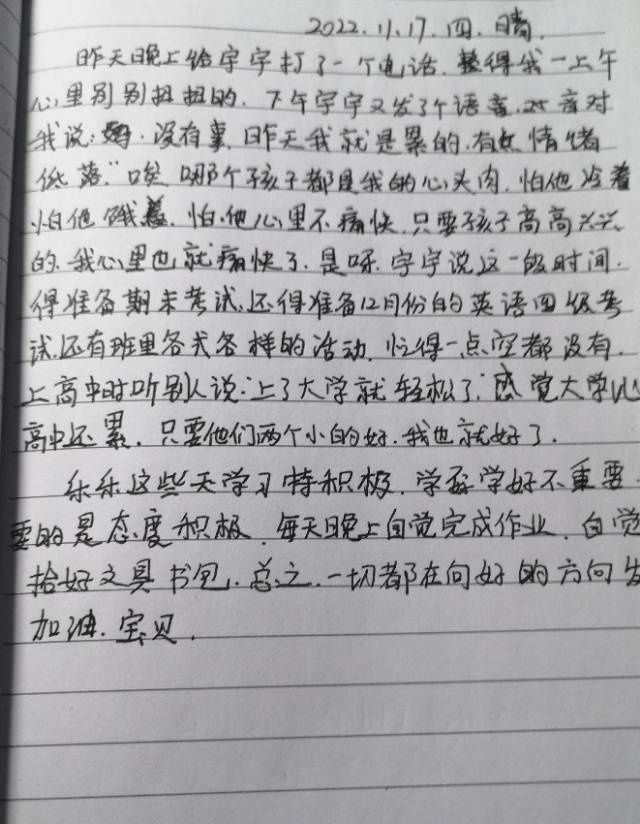 2022.11.17.四.晴.
昨天晚上给宇宇打了一个电话.整得我一上午
心里别别扭扭的.下午宇宇又发了个语音对
我说:妈.没有事.昨天我就是累的.有点情绪
低落."唉.哪个孩子都是我的心头肉.怕他冷着
怕他饿着.怕他心里不痛快.只要孩子高高兴兴
的.我心里也就痛快了.是呀.宇宇说这一段时间.
得准备期末考试.还得准备12月份的英语四级考
试.还有班里各式各样的活动.忙得一点空都没有.
上高中时听别人说:上了大学就轻松了.感觉大学比
高中还累.只要他们两个小的好.我也就好了.
乐乐这些天学习特积极.学孬学好不重要.
要的是态度积极.每天晚上自觉完成作业.自觉
拾好文具书包.总之.一切都在向好的方向发
加油.宝贝.